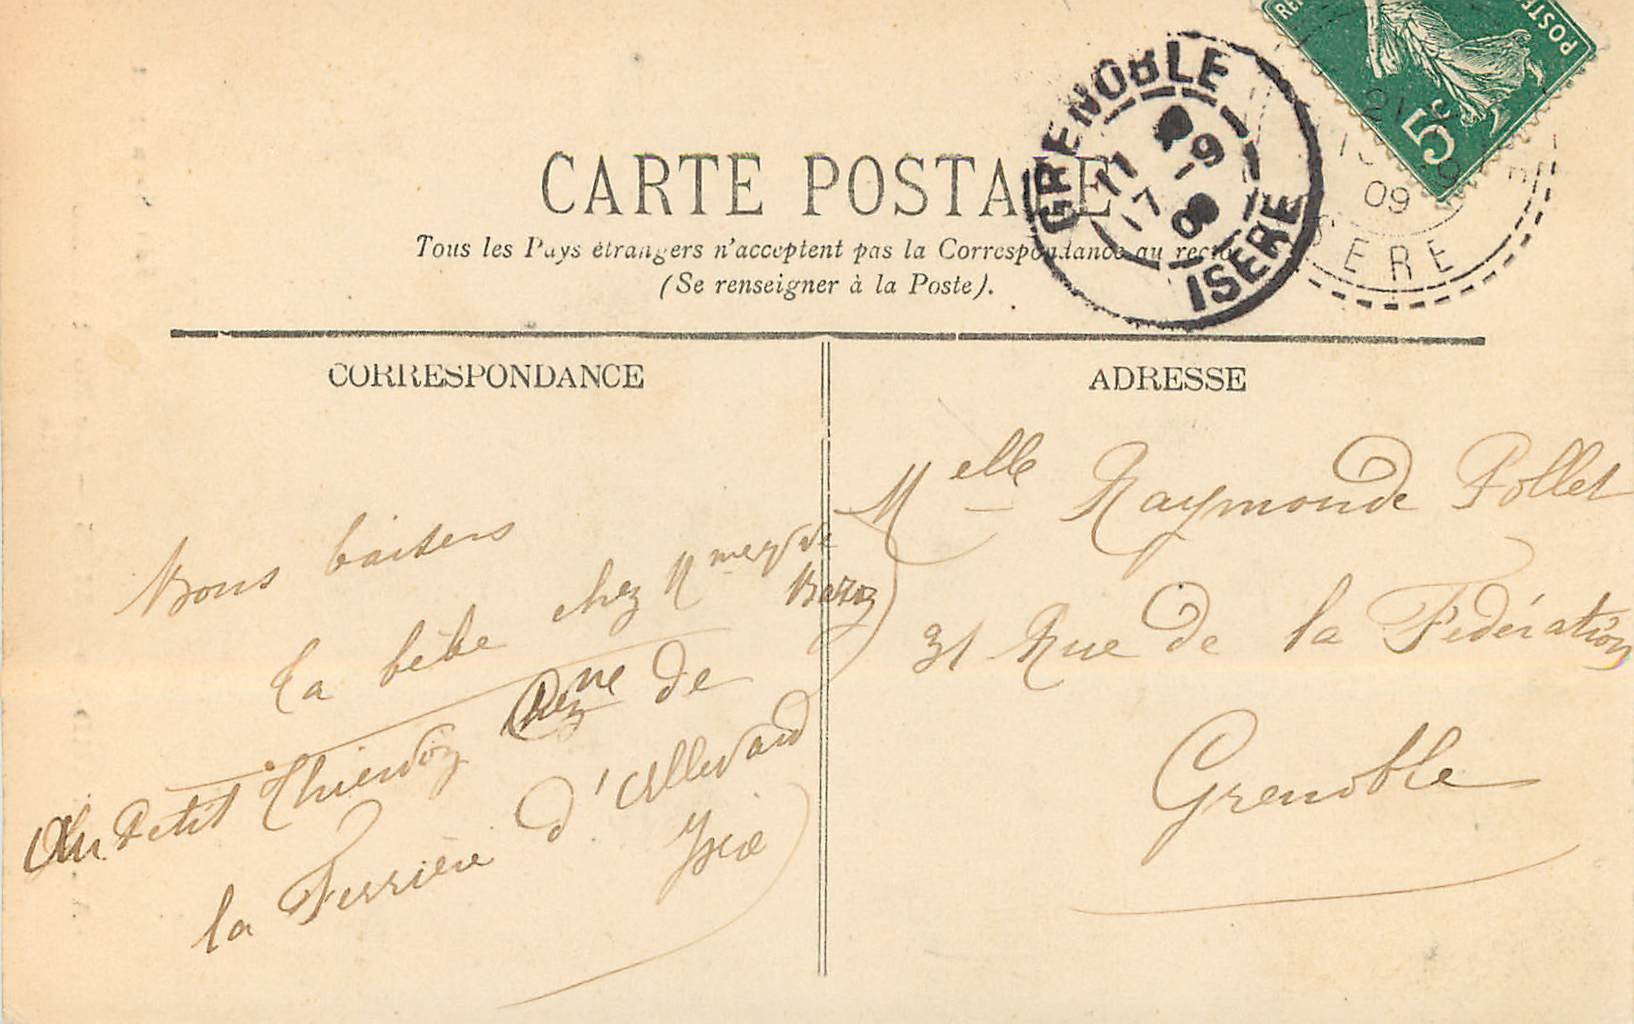 CARTE POSTALE
Tous les Pays étrangers n'acceptent pas la Correspondance au recto
(Se renseigner à la Poste).
GRENOBLE
ISERE
11
17 9
09
5c
POSTE
09
ISERE
CORRESPONDANCE
Bons baisers
La bébé chez Mme
au Petit Thiervoz Cne de
la Ferrière d'Allevard
ADRESSE
Melle Raymonde Pollet
31 Rue de la Fédération
Grenoble